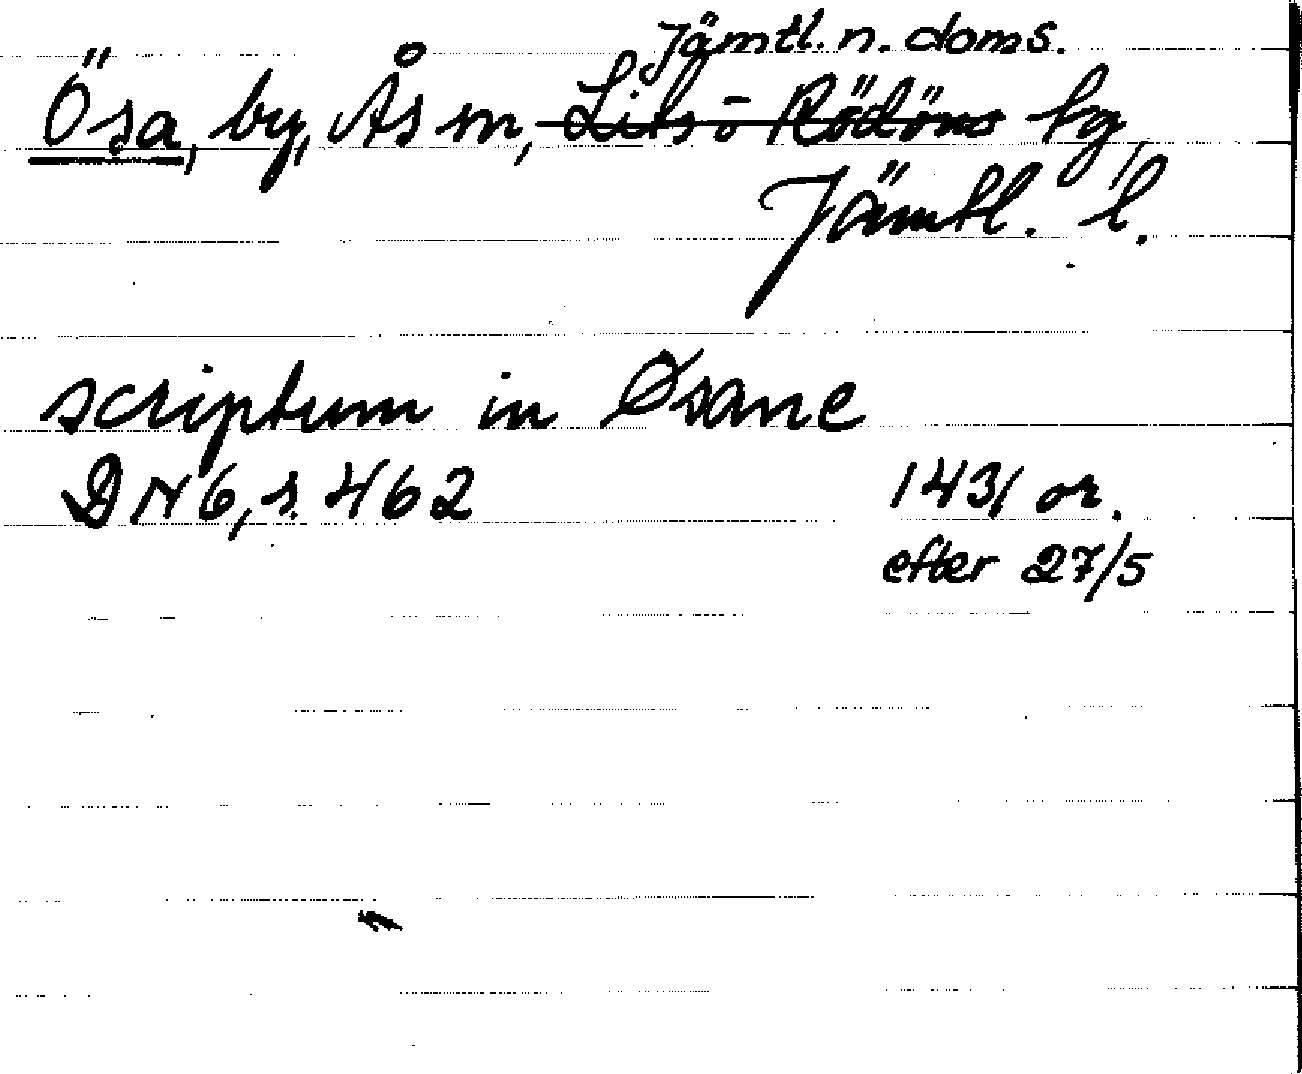 Jämtl. n. doms.
Ösa, by, Ås sn, Lits o Rödöns tg
Jämtl. l.
scriptum in Øsane
DN 6, s. 462 1431 or.
efter 27/5